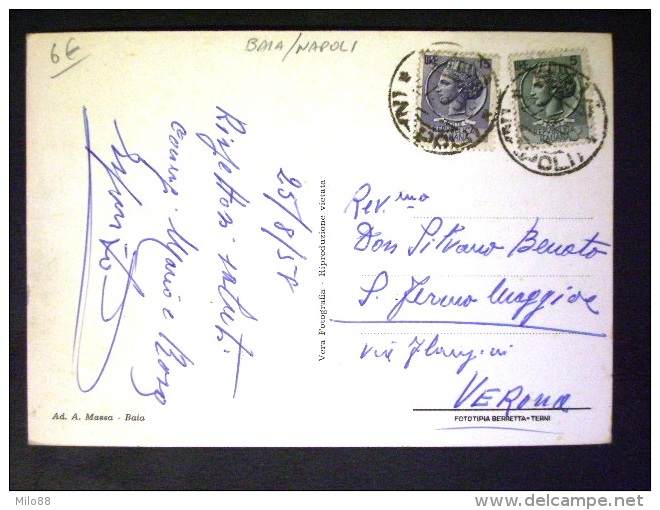 6€
BAIA/NAPOLI
LIRE 15
5
NAPOLI
25/8/58
Rispettosi saluti
Mario e
Rev.mo
Don Silvano Benato
S. Fermo Maggiore
via
VERONA
Vera Fotografia - Riproduzione vietata
Ad. A. Massa - Baia
FOTOTIPIA BERRETTA - TERNI
Milo88
delcampe.net